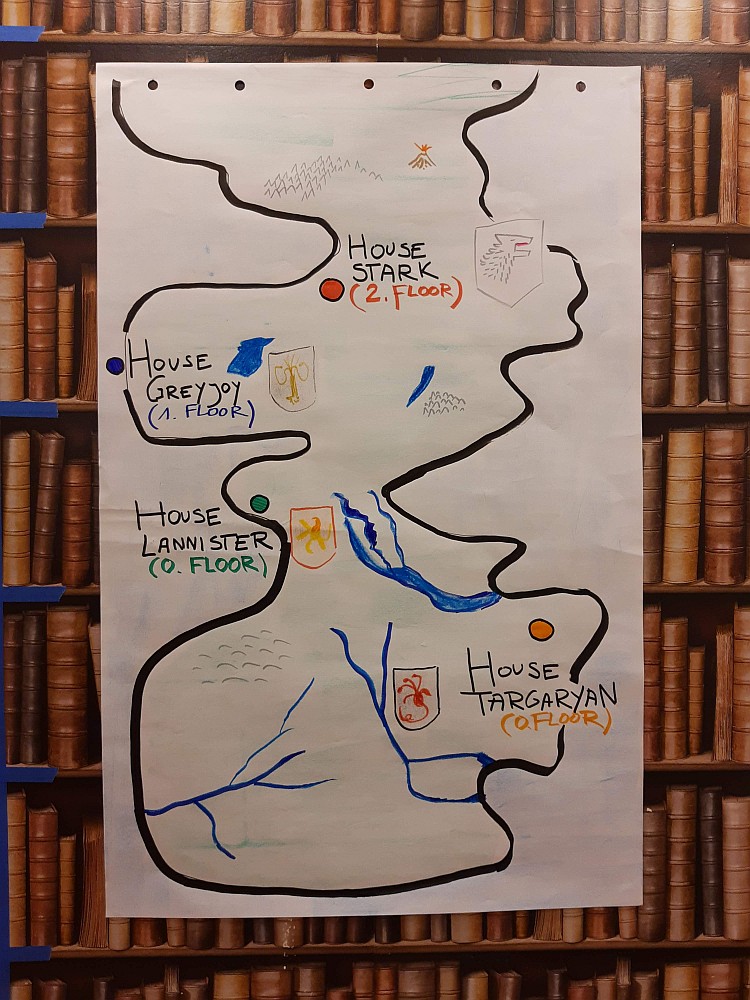 HOUSE
STARK
(2. FLOOR)
HOUSE
GREYJOY
(1. FLOOR)
HOUSE
LANNISTER
(0. FLOOR)
HOUSE
TARGARYAN
(0. FLOOR)